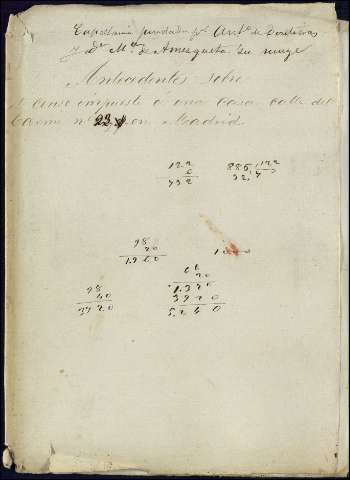 Capellania fundada por Antº de
y Dª Mª de Amesqueta su muger
Antecedentes sobre
el Censo impuesto á una Casa calle del
Carmen nº 23 en Madrid
122
6
732
885 122
32, 7
98
20
1.960
98
40
3920
68
20
1.320
3920
5.240